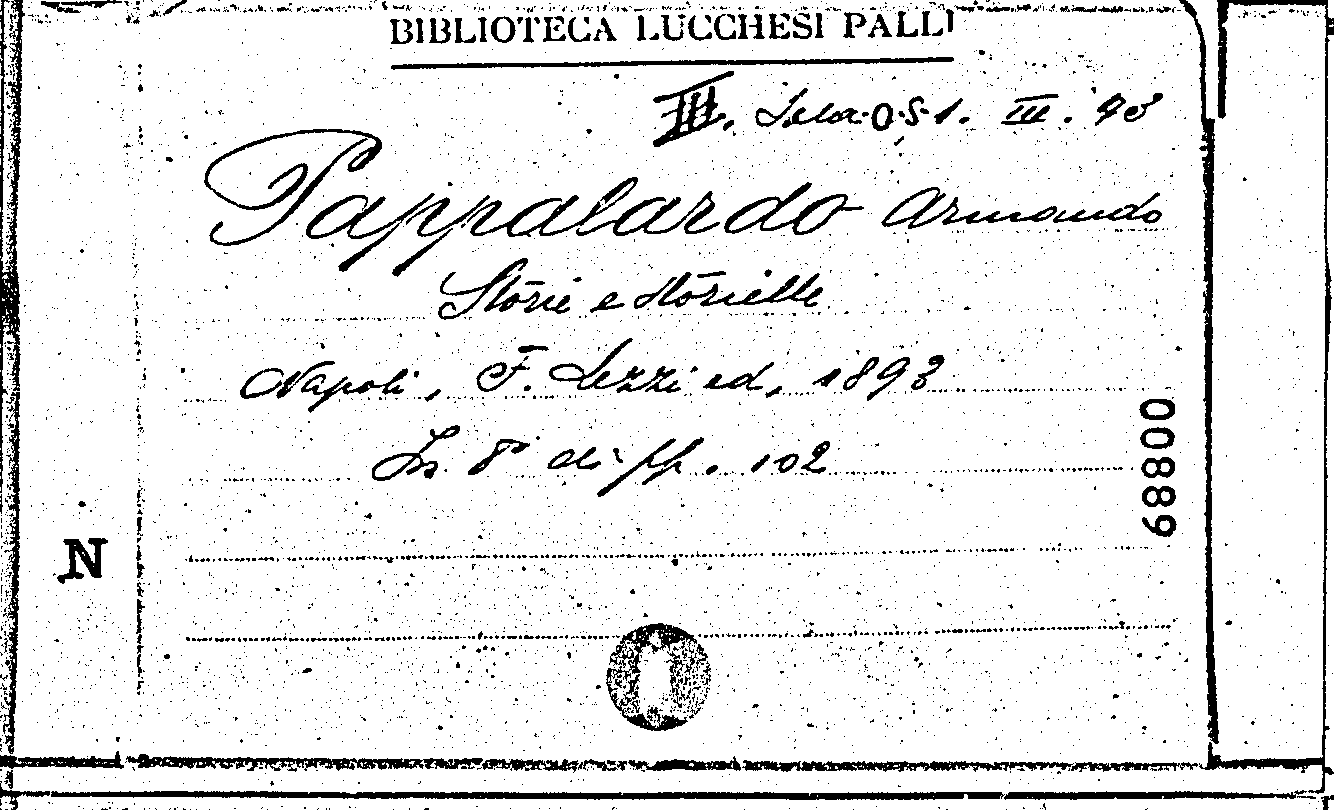 BIBLIOTECA LUCCHESI PALLI
III. Sala. O. S. 1. III. 93
Pappalardo Armando
Storie e storielle
Napoli, F. Lezzi ed, 1893
In 8° di pp. 102
68800
N